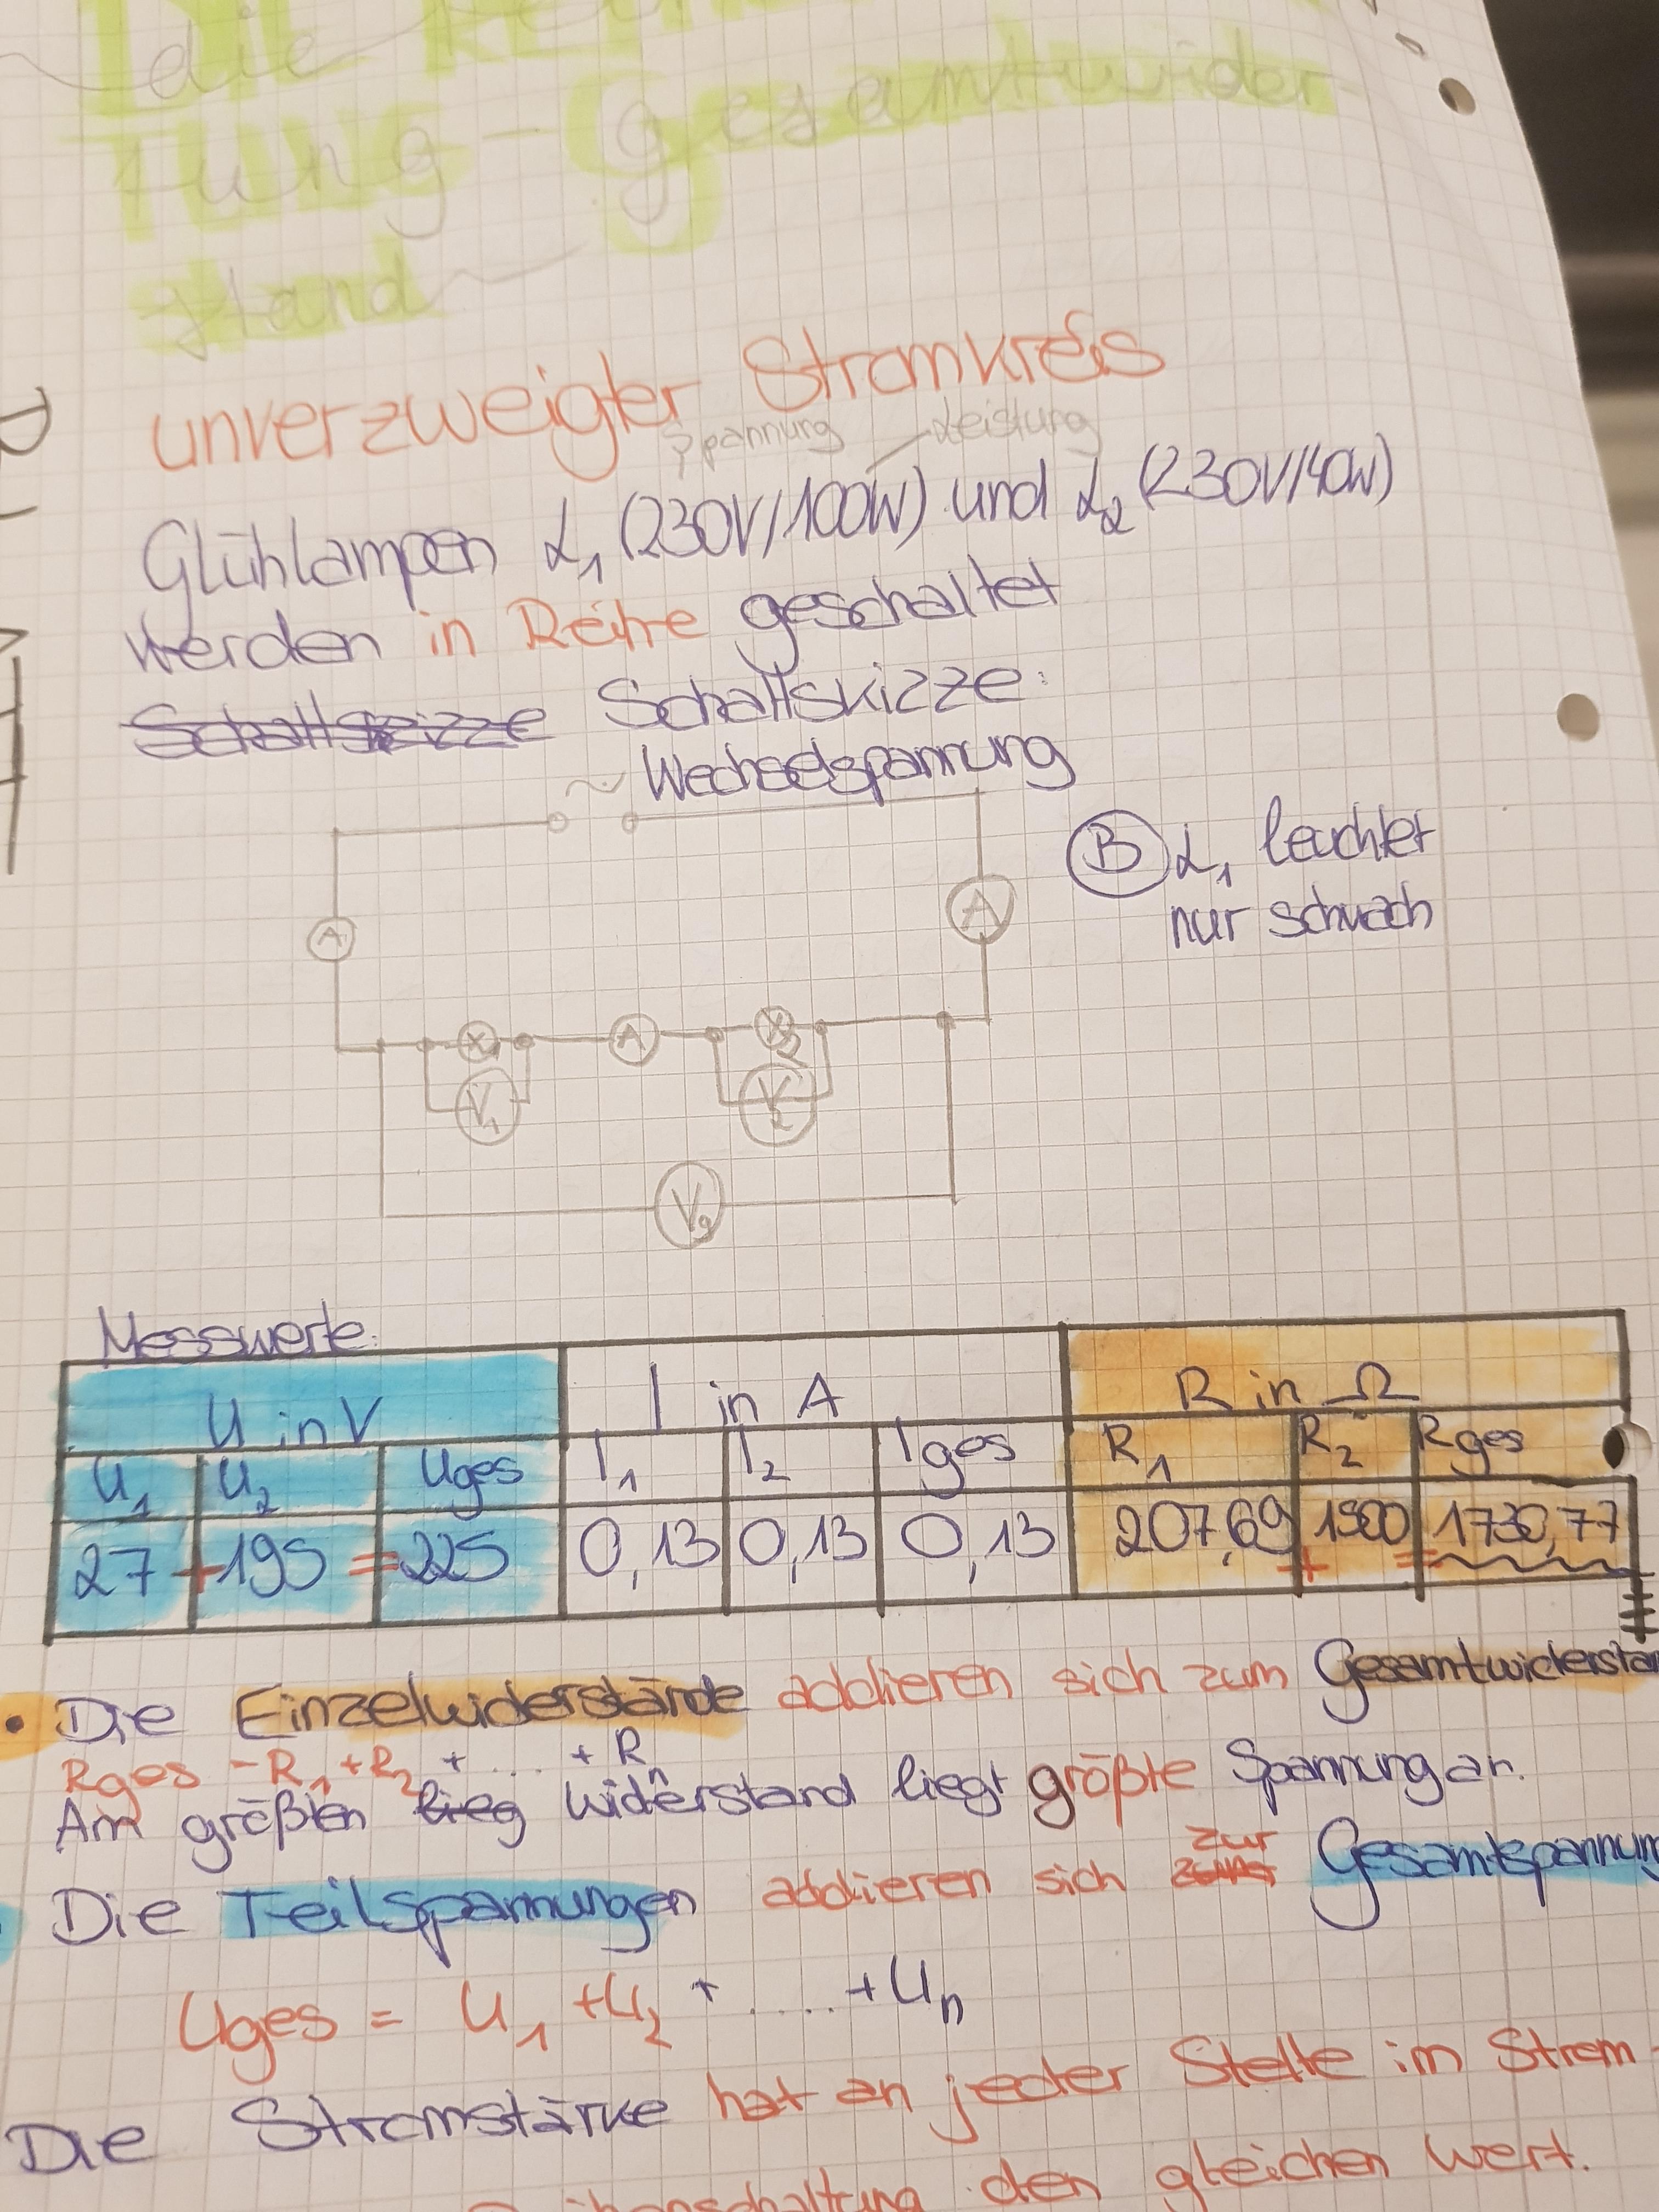 die Reihenschal-
tung - Gesamtwider-
stand
unverzweigter Stromkreis
Spannung Leistung
Glühlampen L1 (230V/100W) und L2 (230V/40W)
werden in Reihe geschaltet
Schaltskizze Schaltskizze:
~ Wechselspannung
B L1 leuchtet
nur schwach
A A
X1 A X2
V1 V2
Vg
Messwerte:
U in V I in A R in Ω
U1 U2 Uges I1 I2 Iges R1 R2 Rges
27 + 195 = 225 0,13 0,13 0,13 207,69 + 1500 = 1730,77
• Die Einzelwiderstände addieren sich zum Gesamtwiderstan
Rges = R1 + R2 + .... + Rn
Am größten lieg widerstand liegt größte Spannung an.
Die Teilspannungen addieren sich zur Gesamtspannung
Uges = U1 + U2 + ..... + Un
Die Stromstärke hat an jeder Stelle im Strom-
den gleichen Wert.